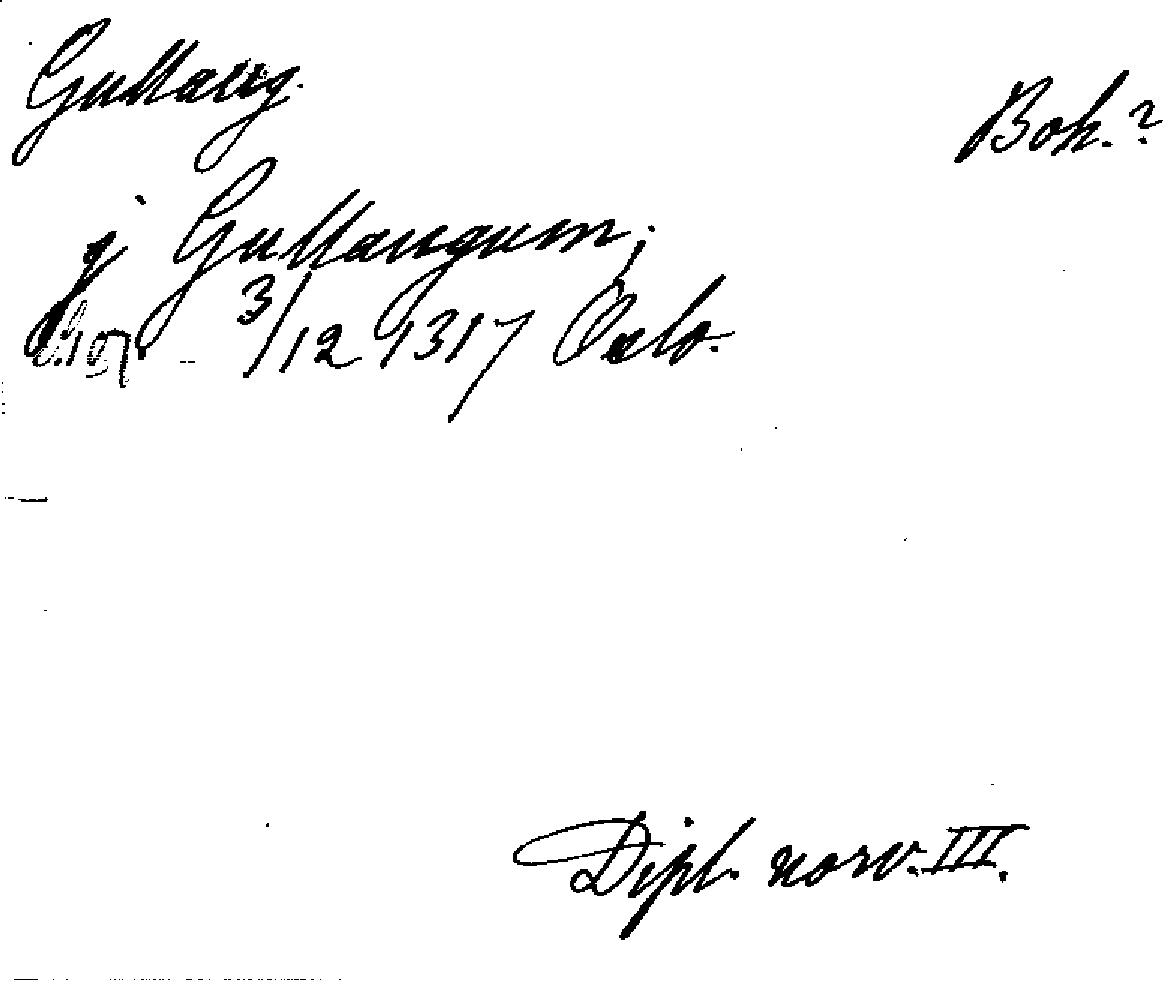 Gullaug.
Boh.?
j Gullaugum;
3/12 1317 Oslo.
Dipl. norv. III.